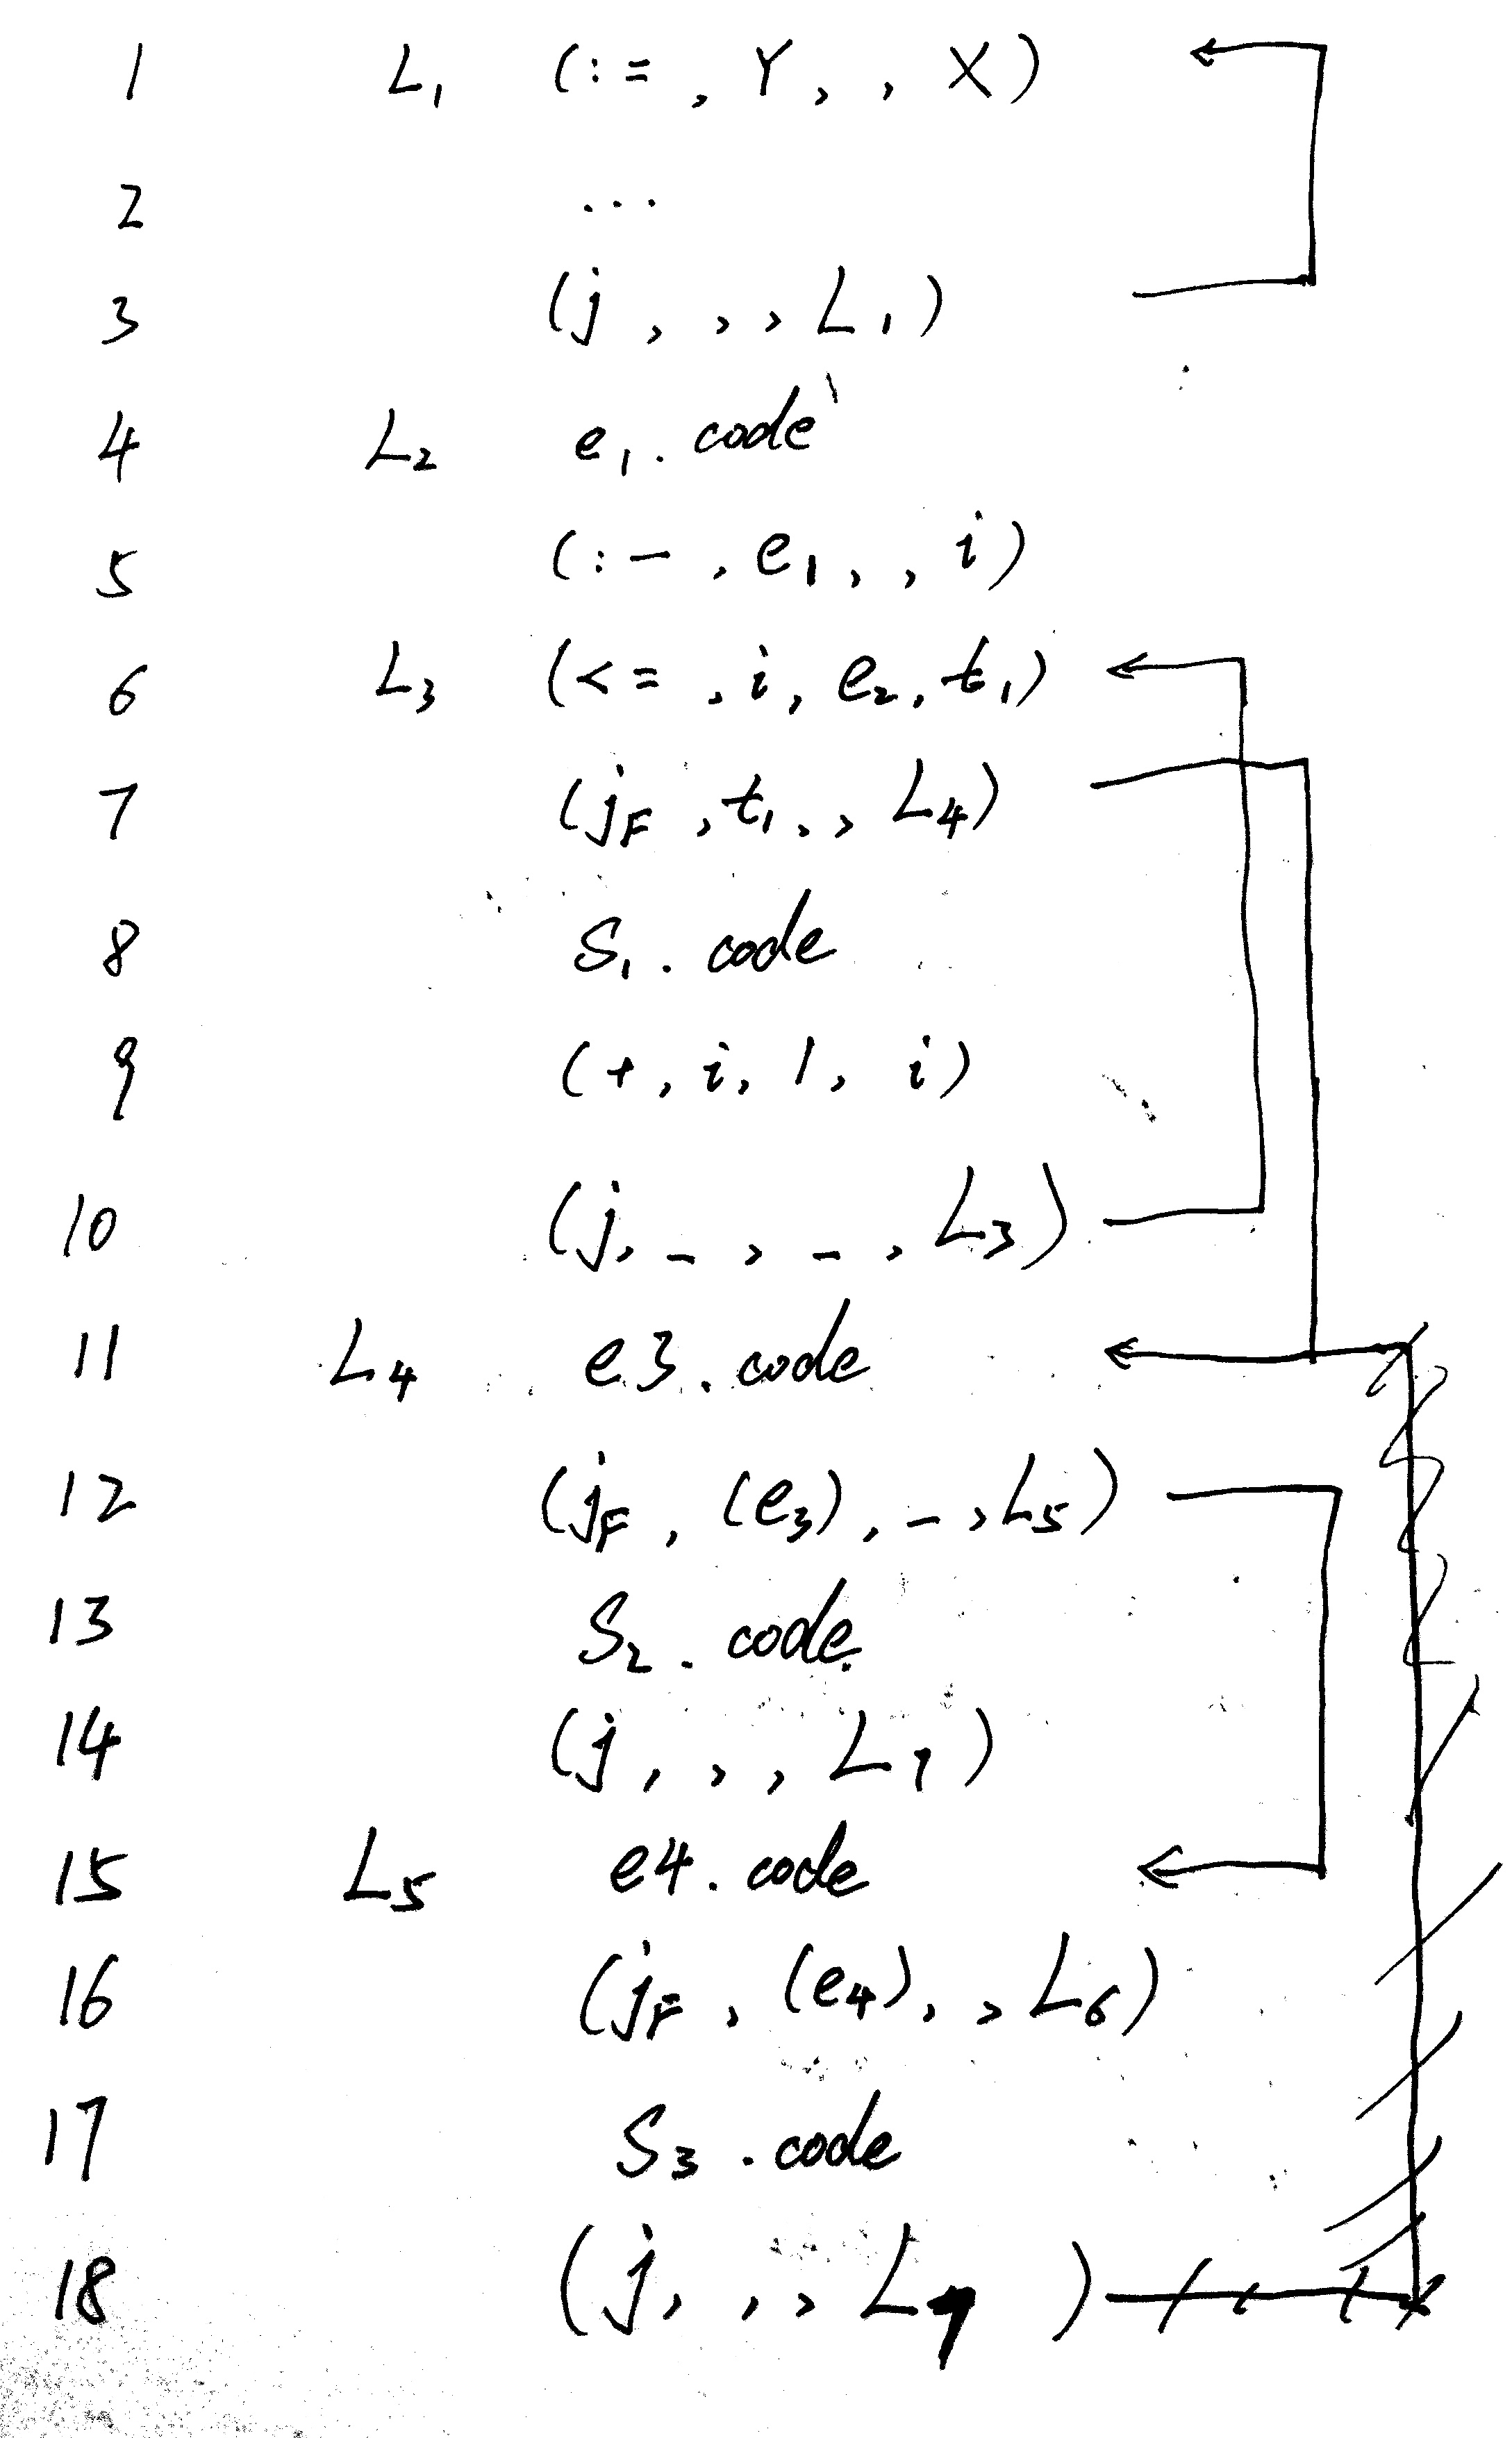 1 L₁ (:=, Y, , X)
2 ...
3 (j, , , L₁)
4 L₂ e₁. code
5 (:–, e₁, , i)
6 L₃ (<=, i, e₂, t₁)
7 (jF, t₁, , L₄)
8 S₁. code
9 (+, i, 1, i)
10 (j, –, –, L₃)
11 L₄ e3. code
12 (jF, (e₃), –, L₅)
13 S₂. code
14 (j, , , L₇)
15 L₅ e4. code
16 (jF, (e₄), , L₆)
17 S₃. code
18 (j, , , L₇)